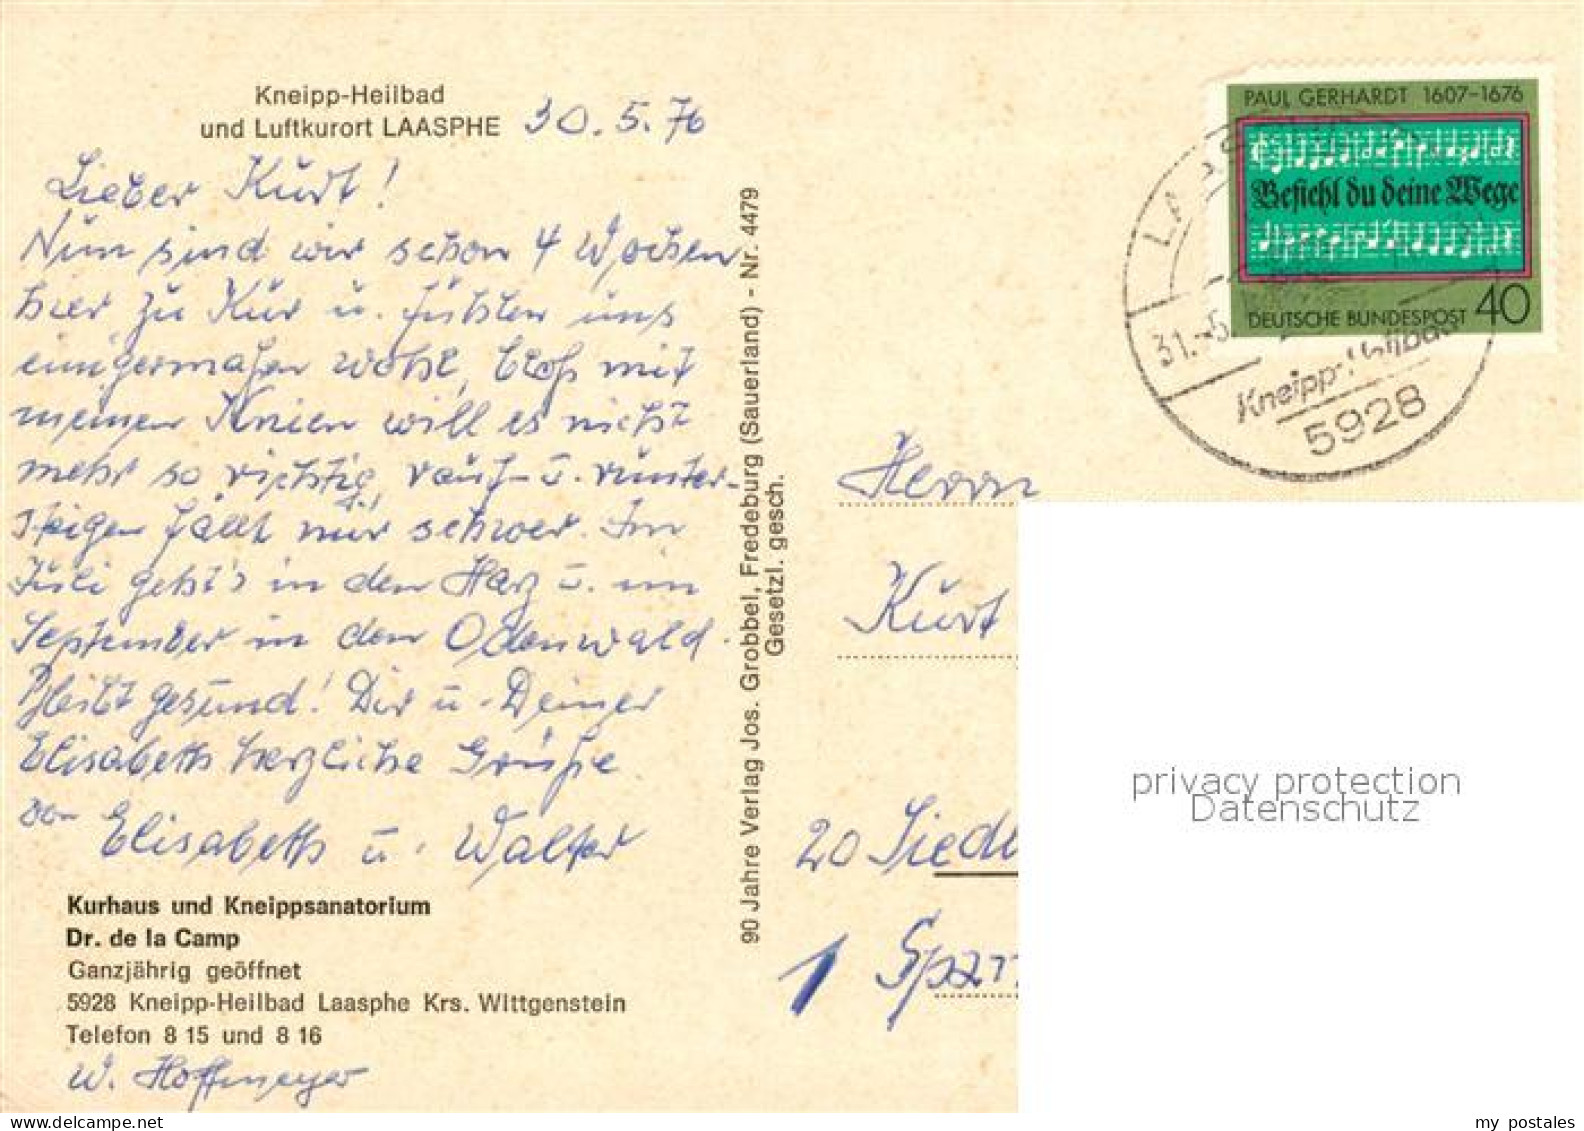 Kneipp-Heilbad
und Luftkurort LAASPHE 30.5.76
Lieber Kurt!
Nun sind wir schon 4 Wochen
hier zu Kur u. fühlen uns
einigermaßen wohl, bloß mit
meinen Knien will es nicht
mehr so richtig, rauf- u. runter-
steigen fällt mir schwer. Im
Juli geht's in den Harz u. im
September in den Odenwald.
Bleibt gesund! Dir u. Deiner
Elisabeth herzliche Grüße
von Elisabeth u. Walter
Kurhaus und Kneippsanatorium
Dr. de la Camp
Ganzjährig geöffnet
5928 Kneipp-Heilbad Laasphe Krs. Wittgenstein
Telefon 8 15 und 8 16
W. Hoffmeyer
90 Jahre Verlag Jos. Grobbel, Fredeburg (Sauerland) - Nr. 4479
Gesetzl. gesch.
PAUL GERHARDT 1607-1676
Befiehl du deine Wege
DEUTSCHE BUNDESPOST 40
31.-5.
Kneipp-Heilbad
5928
Herrn
Kurt
20 Siedl
1 Sparr
privacy protection
Datenschutz
my postales